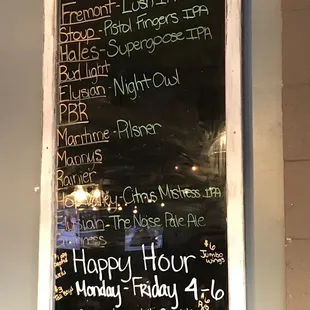 Fremont - Lush IPA
Stoup - Pistol Fingers IPA
Hales - Supergoose IPA
Bud light
Elysian - Night Owl
PBR
Maritime - Pilsner
Mannys
Rainier
Hop Valley - Citrus Mistress IPA
Elysian - The Noise Pale Ale
Guinness
$6
Jumbo
wings
Happy Hour
Monday - Friday 4-6